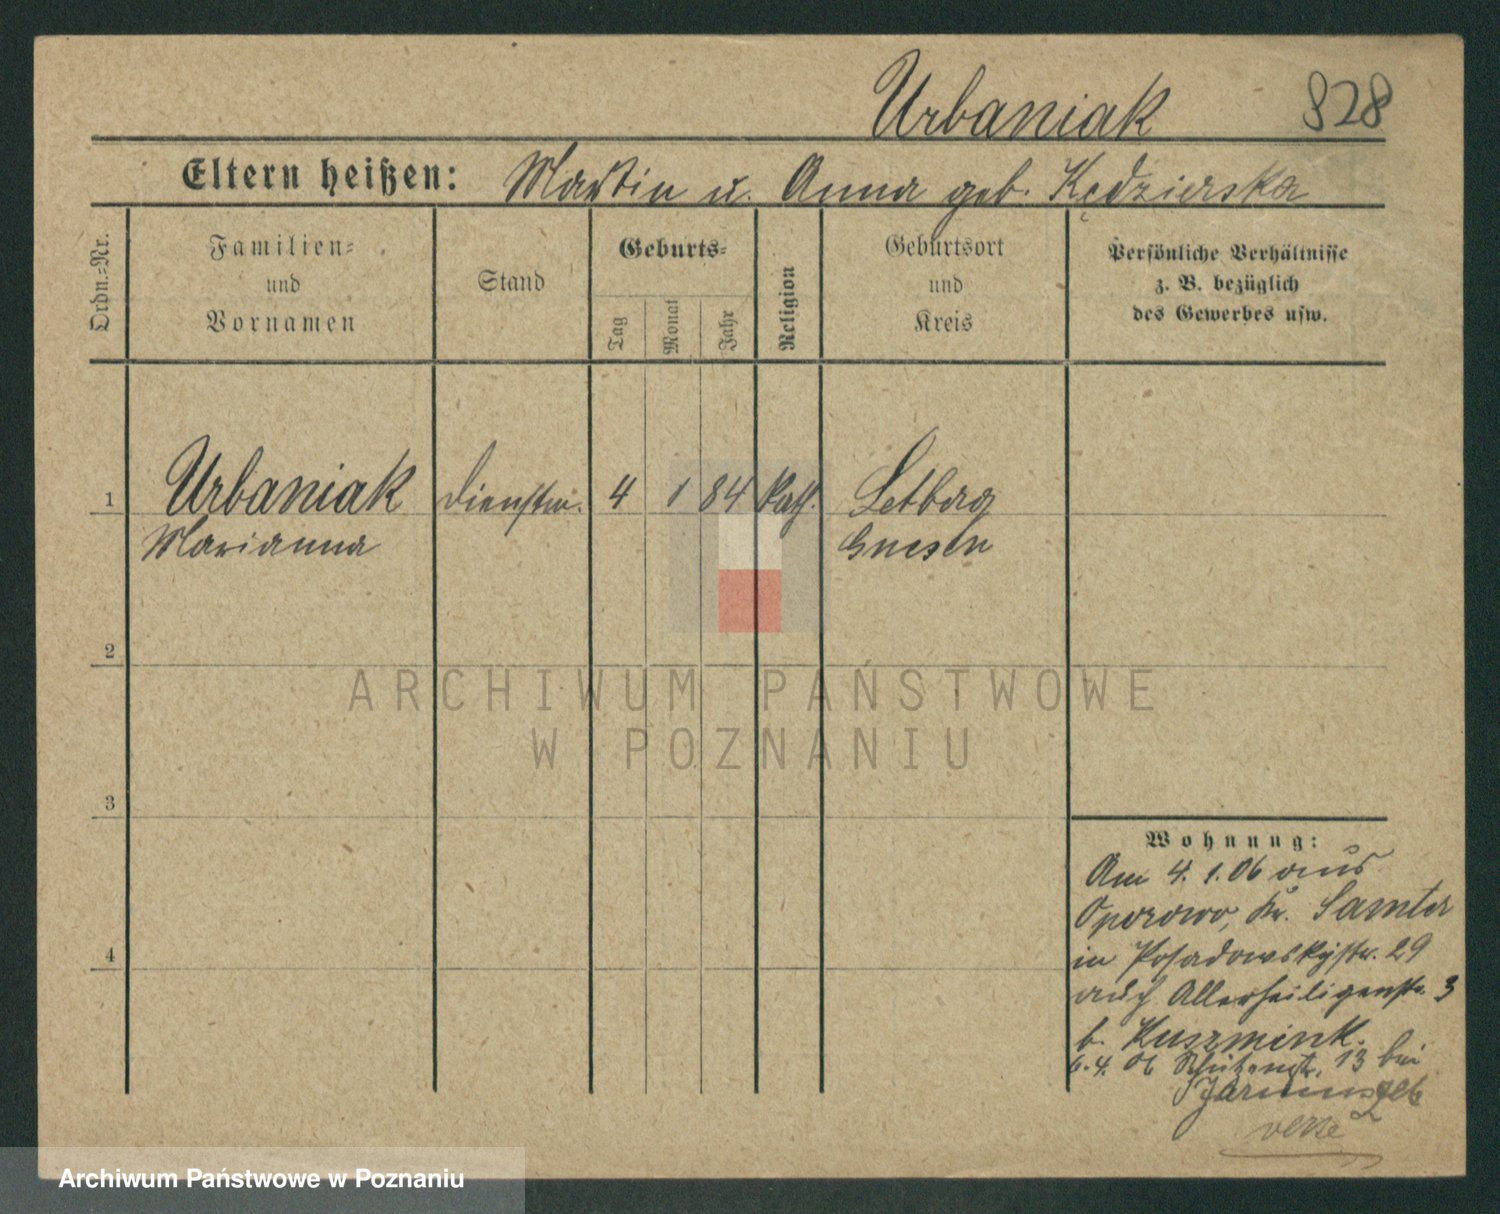 Urbaniak 828
Eltern heißen: Martin u. Anna geb. Kędzierska
Ordn.-Nr.
Familien-
und
Vornamen
Stand
Geburts-
Tag
Monat
Jahr
Religion
Geburtsort
und
Kreis
Persönliche Verhältnisse
z. B. bezüglich
des Gewerbes usw.
1 Urbaniak Dienstm. 4 1 84 kath. Letberg
Marianna Gnesen
2
3
4
ARCHIWUM PAŃSTWOWE
W POZNANIU
Wohnung:
Am 4. 1. 06 aus
Oporowo, Kr. Samter
in Posadowskystr. 29
auch Allerheiligenstr. 3
b. Kuszmink.
6. 4. 06 Schützenstr. 13 bei
Archiwum Państwowe w Poznaniu